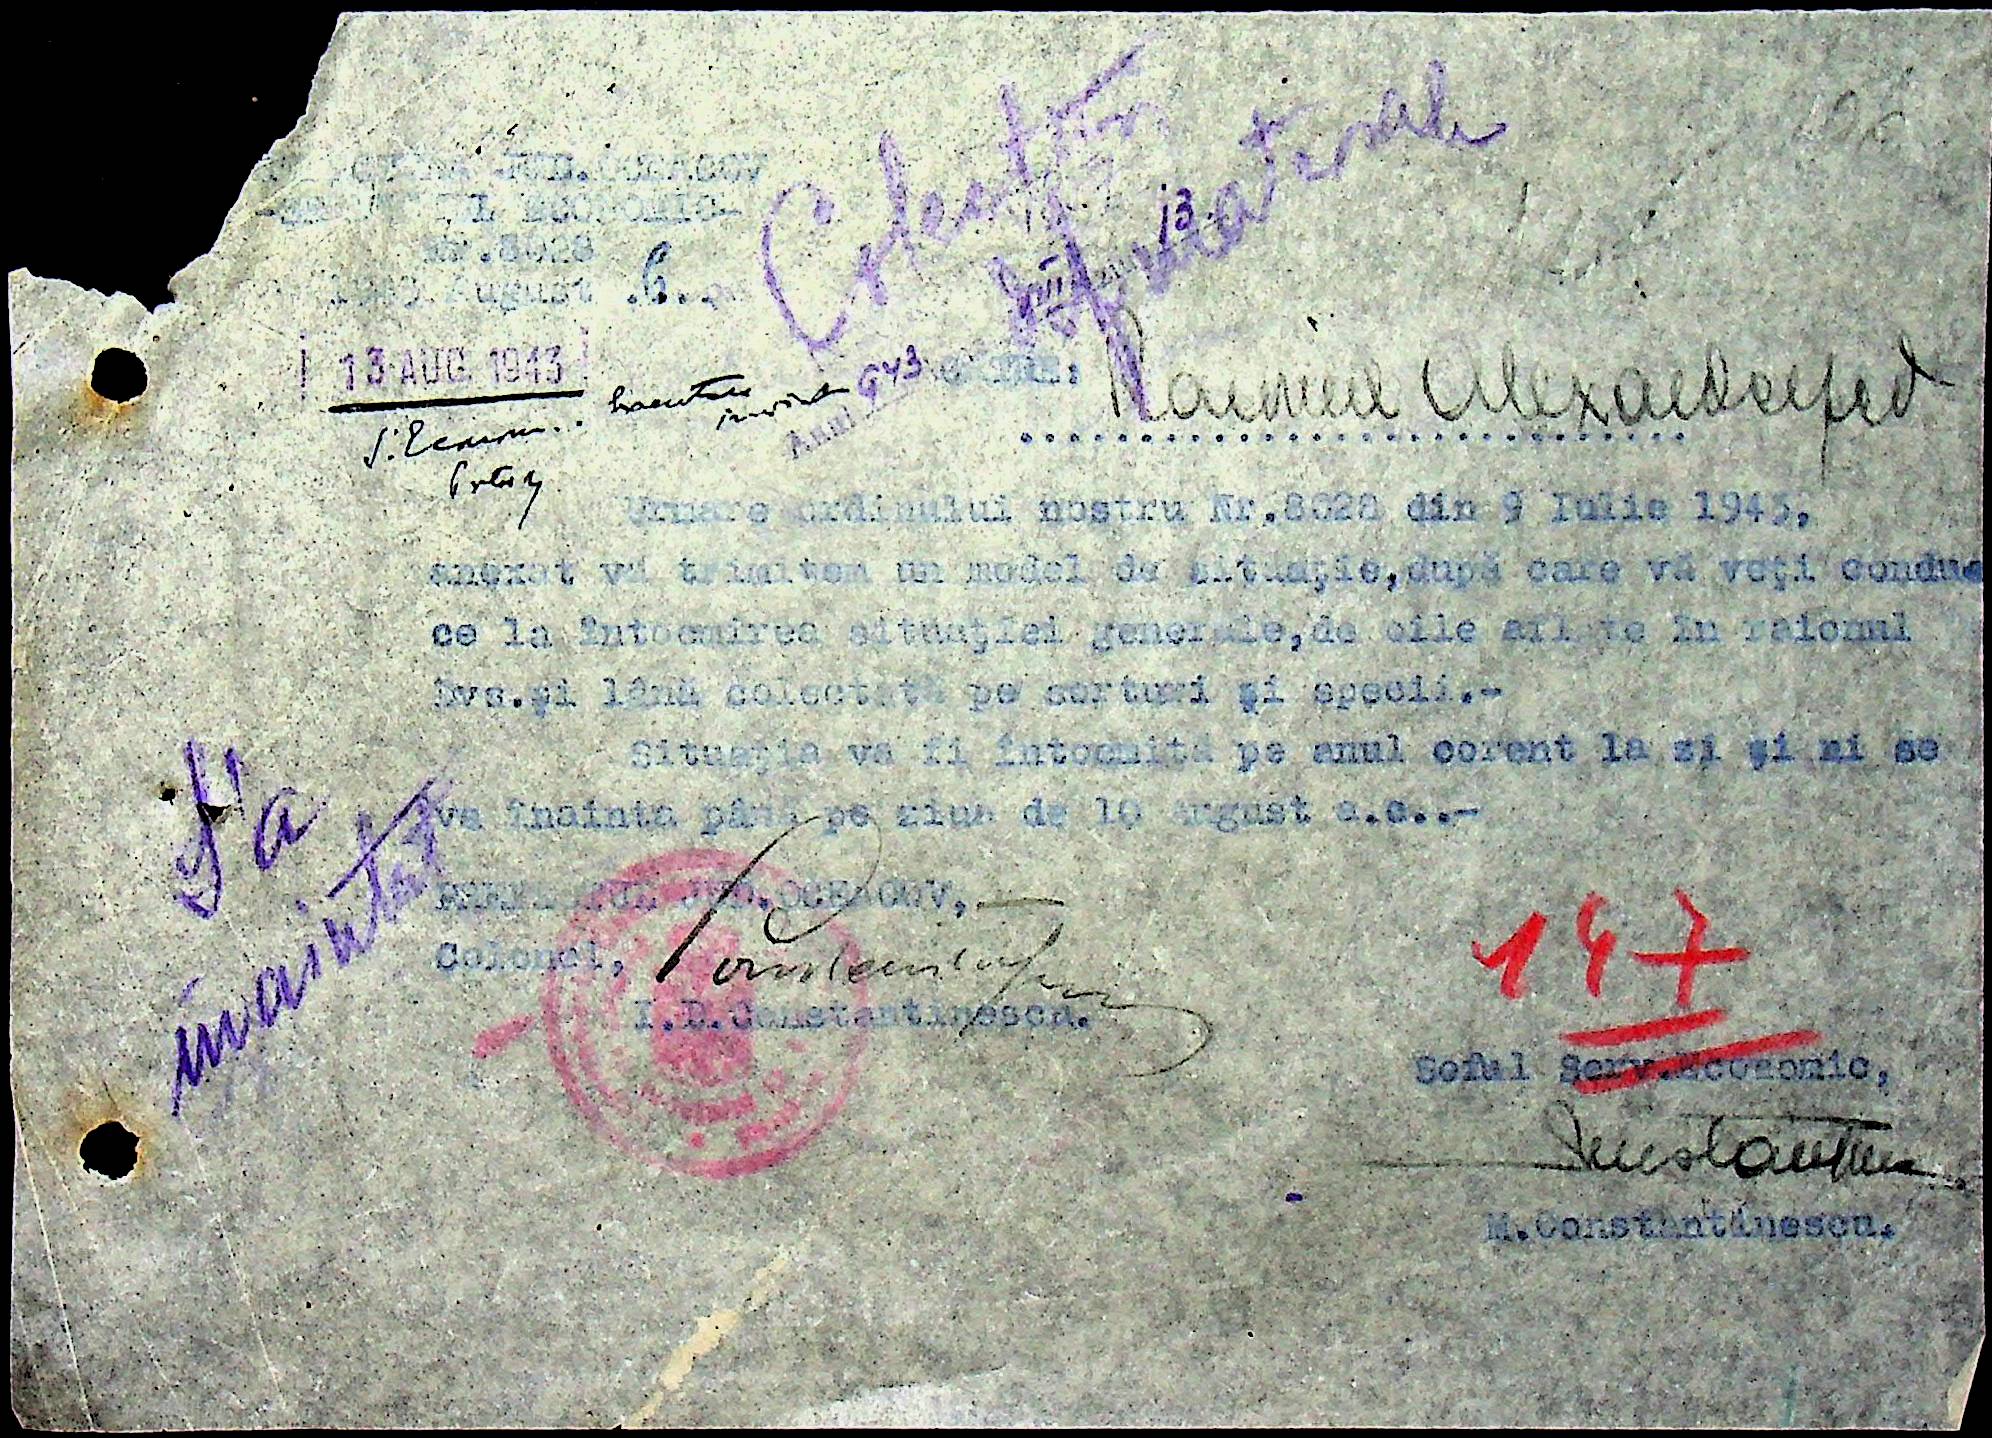 JUD.OCEACOV
ECONOMIC-
Nr.8628
1943 August 6
Colectări
materiale
13 AUG 1943
CĂTRE: Raionul Alexanderfeld
Urmare ordinului nostru Nr.8628 din 9 Iulie 1943,
anexat vă trimitem un model de situaţie,după care vă veţi condu
ce la întocmirea situaţiei generale,de oile aflate în raionul
Dvs.şi lână colectată pe sorturi şi specii.-
Situaţia va fi întocmită pe anul corent la zi şi ni se
va înainta până pe ziua de 10 August a.c..-
S'a
înaintat
PREFECTUL JUD.OCEACOV,
Colonel,
I.D.Constantinescu.
147
Seful Serv.Economic,
M.Constantinescu.